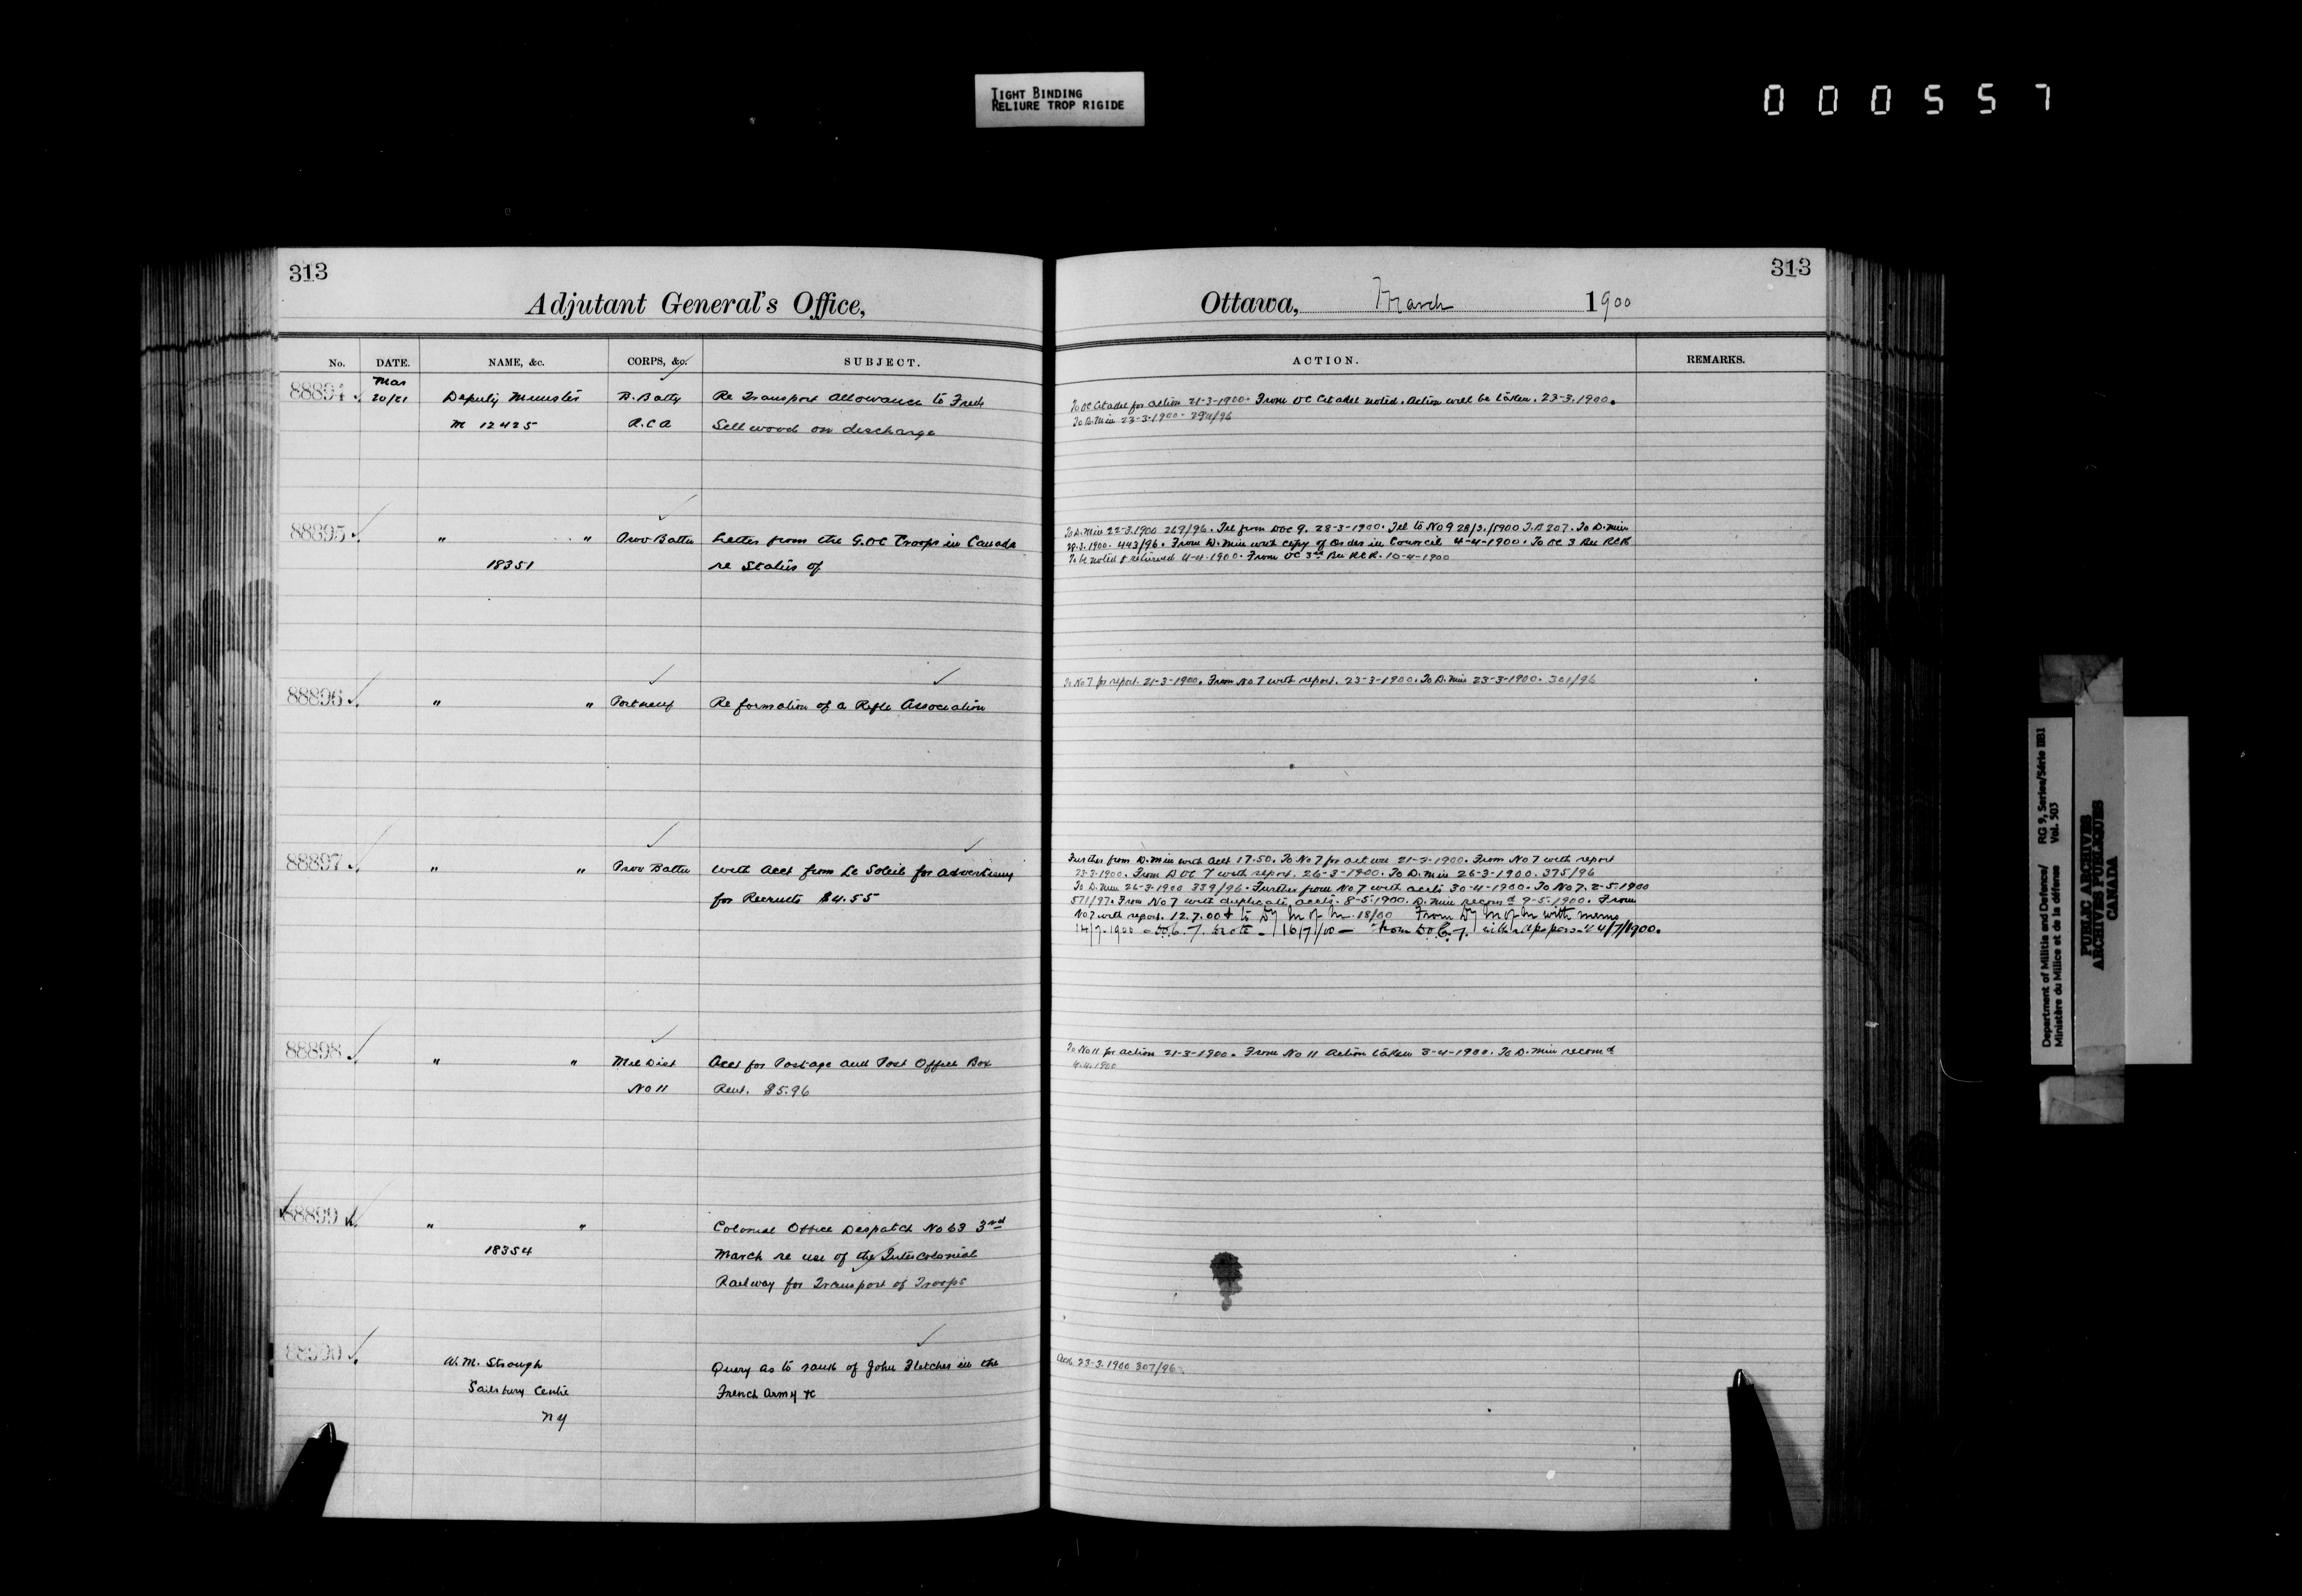 TIGHT BINDING
RELIURE TROP RIGIDE
000557
313
Adjutant General's Office,
No. DATE. NAME, &c. CORPS, &c. SUBJECT.
88894 Mar 20/21 Deputy Minister B. Batty Re Transport Allowance to Fred
M 12425 R.C.A Sellwood on discharge
88895 " " Prov Battn Letter from the G.O.C Troops in Canada
18351 re Status of
88896 " " Portneuf Re formation of a Rifle Association
88897 " " Prov Battn with acct from Le Soleil for advertising
for Recruits $4.55
88898 " " Mil Dist Acct for Postage and Post Office Box
No 11 Rent. $5.96
88899 " " Colonial Office Despatch No 63 3rd
18354 March re use of the Intercolonial
Railway for Transport of Troops
88900 W. M. Strough Query as to rank of John Fletcher in the
Salisbury Centre French Army &c
N Y
313
Ottawa, March 1900
ACTION. REMARKS.
To OC Citadel for action 21-3-1900. From OC Citadel noted. Action will be taken. 23-3.1900.
To D. Min 23-3-1900. /96
To D. Min 22-3.1900 269/96. Tel from DOC 9. 28-3-1900. Tel to No 9 28/3/1900 207. To D. Min
28.3.1900. 443/96. From D. Min with copy of Order in Council 4-4-1900. To OC 3 Bn RCR
To be noted & returned 4-4-1900. From OC 3rd Bn RCR. 10-4-1900
To No 7 for report. 21-3-1900. From No 7 with report. 23-3-1900. To D. Min 23-3-1900. 301/96
Further from D. Min with acct 17.50. To No 7 for 21-3-1900. From No 7 with report
23-3-1900. From DOC 7 with report. 26-3-1900. To D. Min 26-3-1900. 375/96
To D. Min 26-3-1900 339/96. Further from No 7 with accts 30-4-1900. To No 7. 2-5-1900
571/97. From No 7 with duplicate accts. 8-5-1900. D. Min recomd 9-5-1900. From
No 7 with report. 12.7.00 & to Dy M of M. 18/00 From Dy M of M with memo
14/7-1900 - D.O.C. 7. wrote - 16/7/00 - From D.O.C. 7. with papers 4/7/1900.
To No 11 for action 21-3-1900. From No 11 Action taken 3-4-1900. To D. Min recomd
4.4.1900
Ack 23-3.1900 307/96
Department of Militia and Defence/ RG 9, Series/Série IIB1
Ministère du Milice et de la défense Vol. 503
PUBLIC ARCHIVES
ARCHIVES PUBLIQUES
CANADA